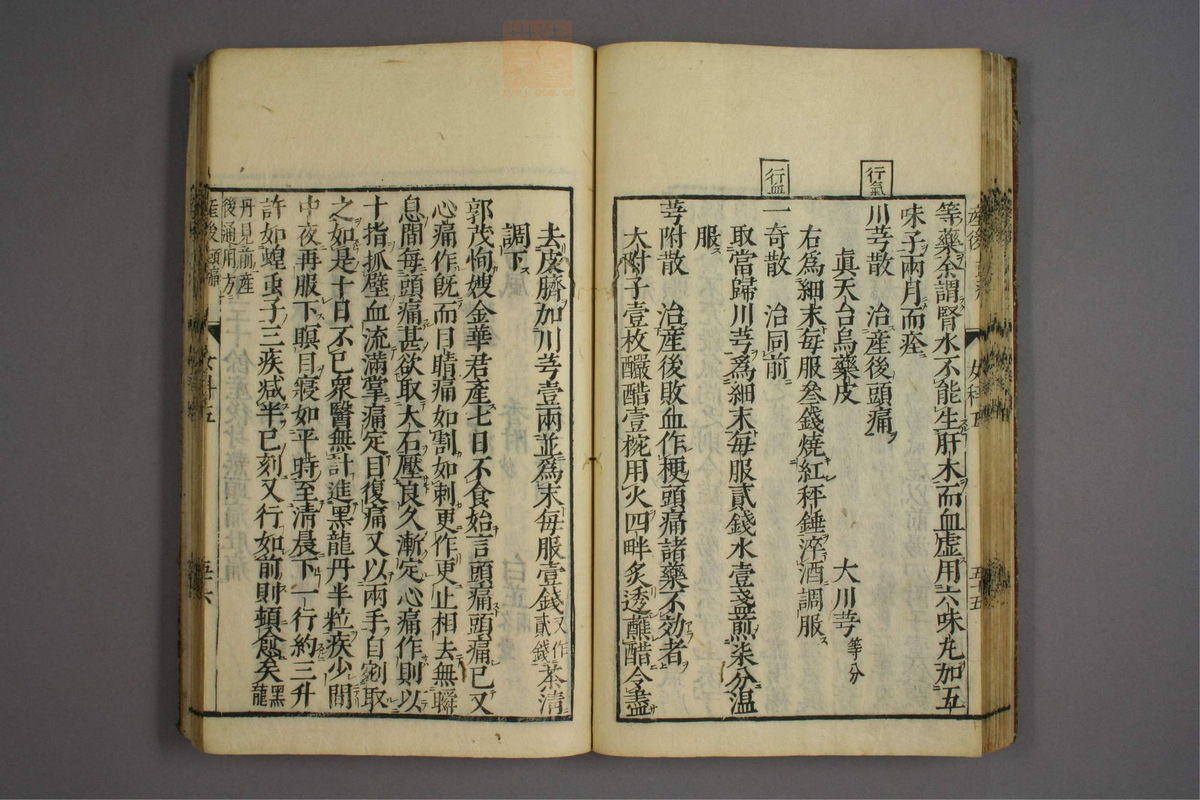 等藥余謂腎水不能生肝木而血虛用六味丸加五
味子兩月而痊
行氣
川芎散 治産後頭痛
眞天台烏藥皮 大川芎等分
右爲細末每服叄錢燒紅秤錘淬酒調服
行血
一奇散 治同前
取當歸川芎爲細末每服貳錢水壹盞煎柒分温
服
芎附散 治産後敗血作梗頭痛諸藥不効者
大附子壹枚釅醋壹椀用火四畔炙透蘸醋令盡
去皮臍加川芎壹兩並爲末每服壹錢又作貳錢茶清
調下
郭茂恂嫂金華君產七日不食始言頭痛頭痛已又
心痛作旣而目睛痛如割如刺更作更止相去無瞬
息間每頭痛甚欲取大石壓良久漸定心痛作則以
十指抓壁血流滿掌痛定目復痛又以兩手自剜取
之如是十日不已衆醫無計進黑龍丹半粒疾少間
中夜再服下瞑目寢如平時至清晨下一行約三升
許如蝗虫子三疾减半已刻又行如前則頓愈矣黑龍
丹見前産後通用方
産後頭痛 女科五